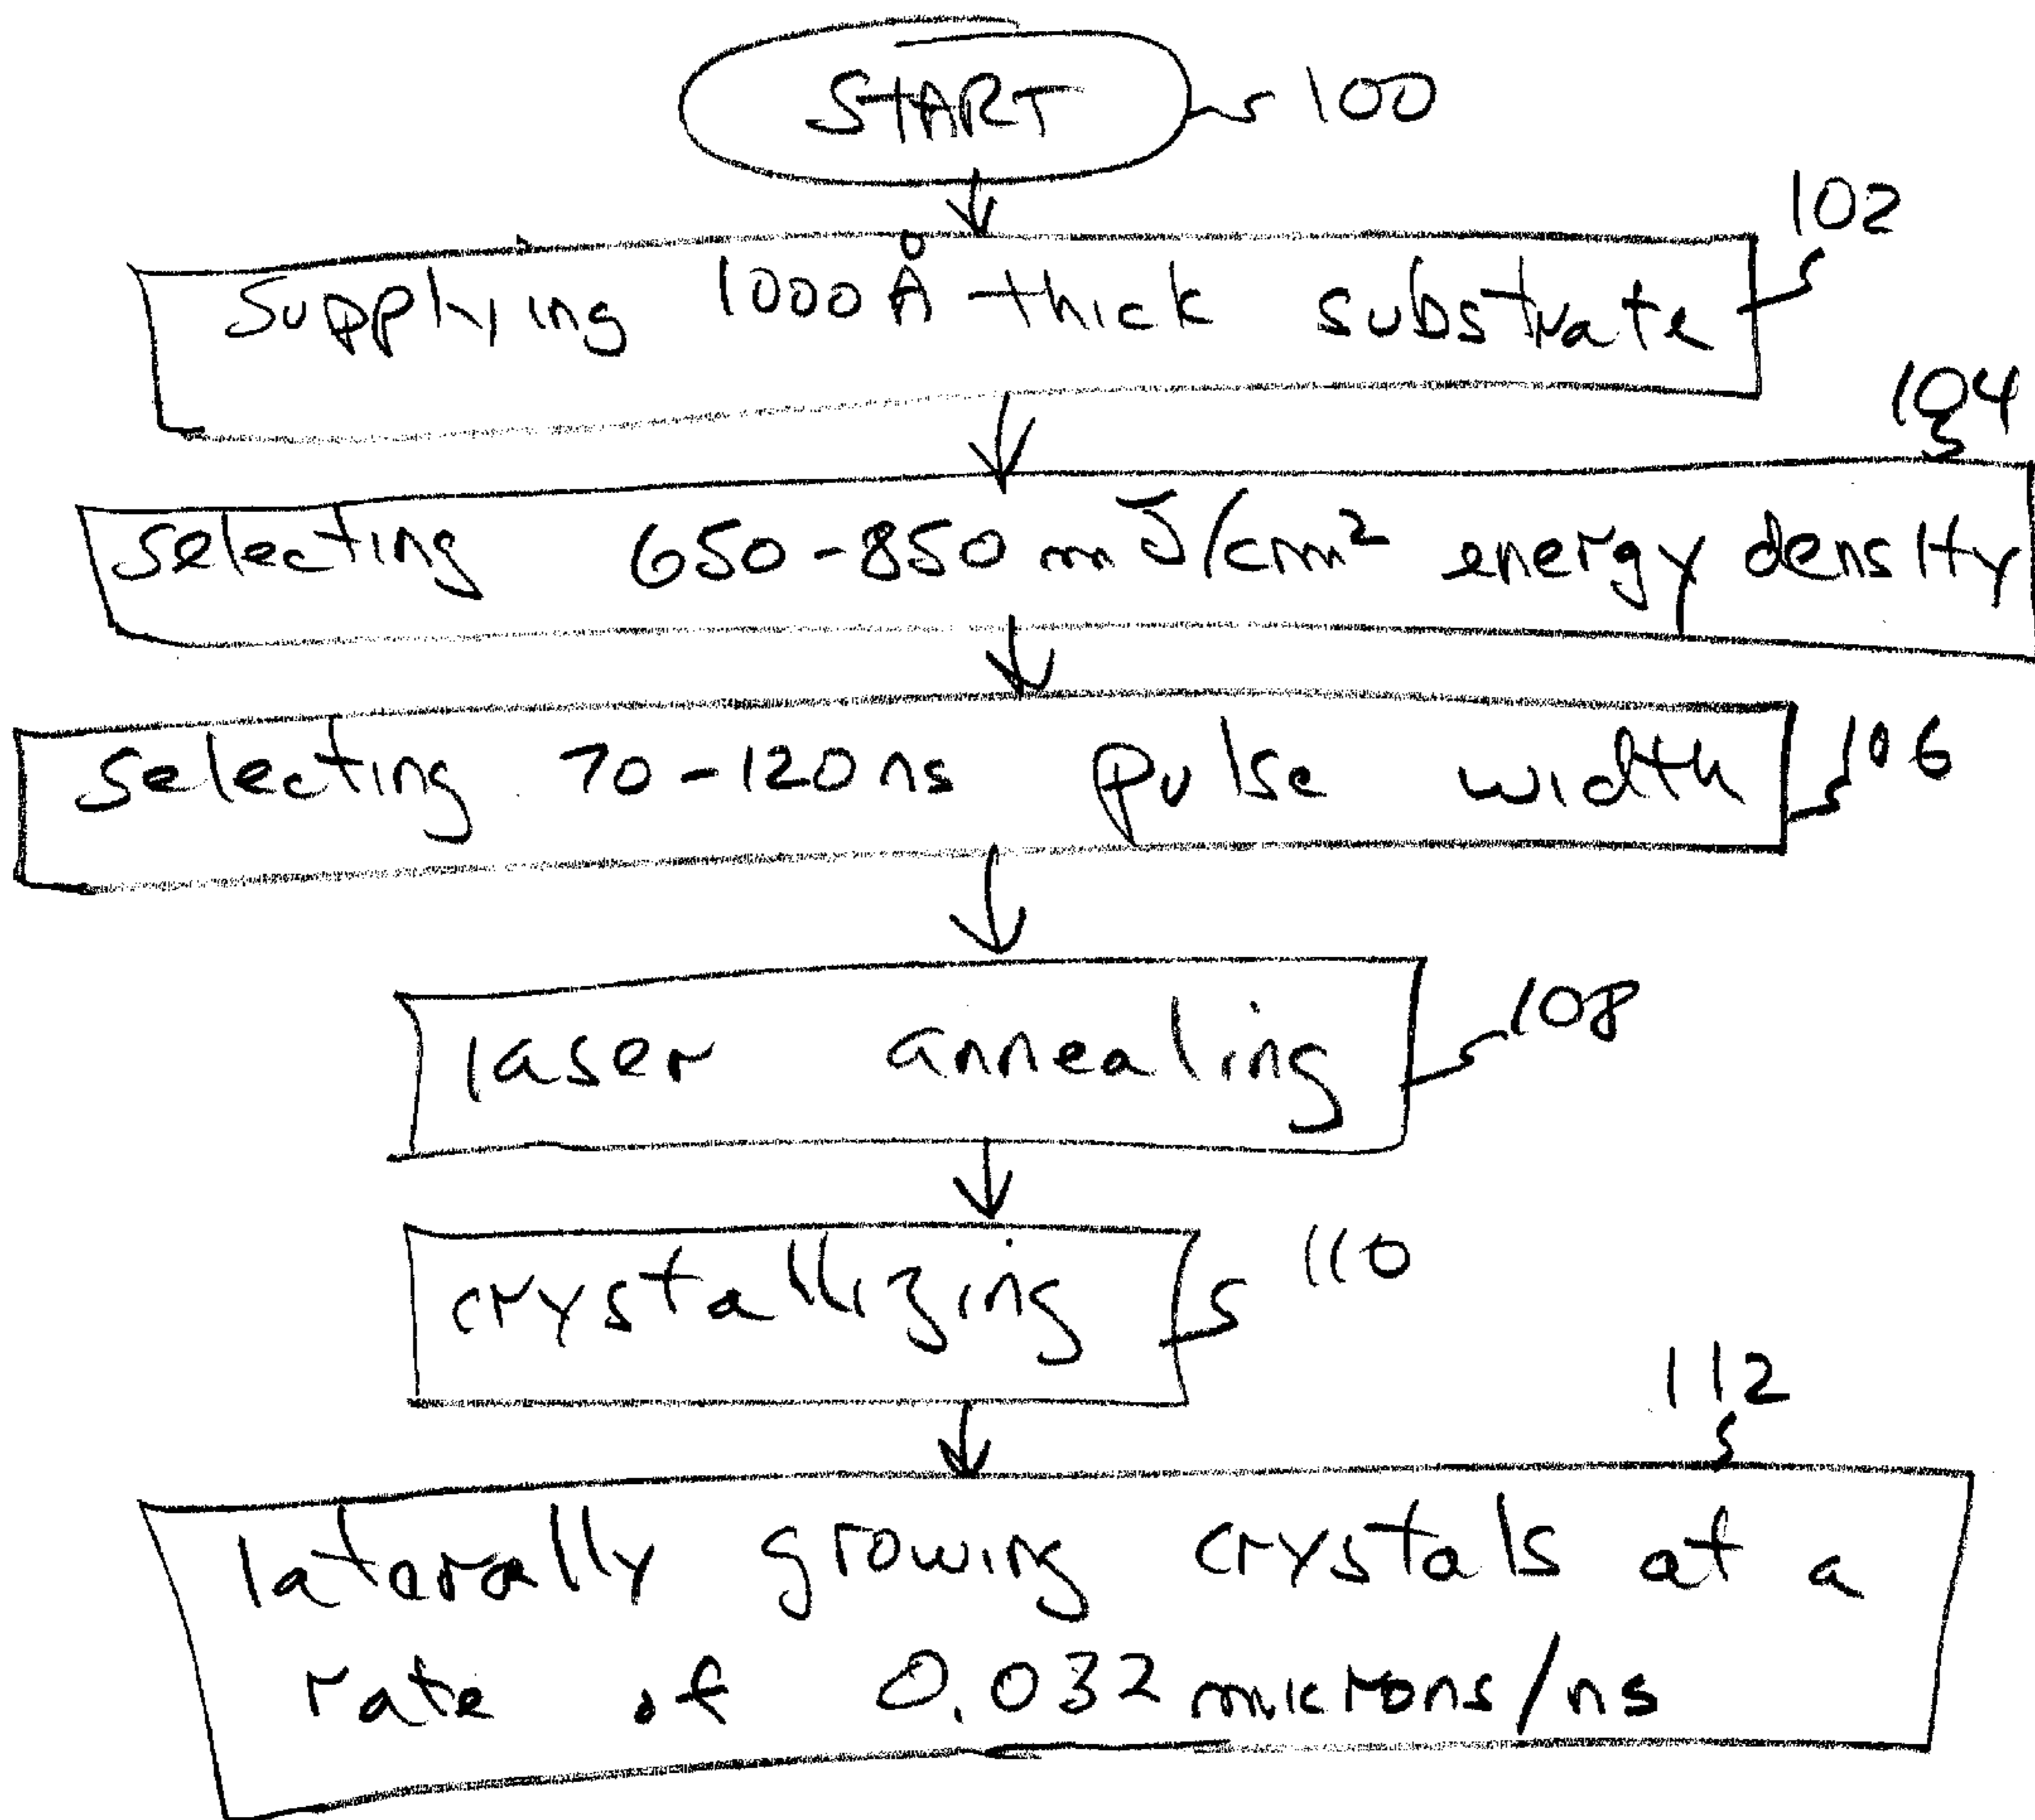 START 100
102
Supplying 1000Å thick substrate
104
selecting 650-850 mJ/cm² energy density
selecting 70-120ns pulse width 106
laser annealing 108
crystallizing 110
112
laterally growing crystals at a
rate of 0.032 microns/ns